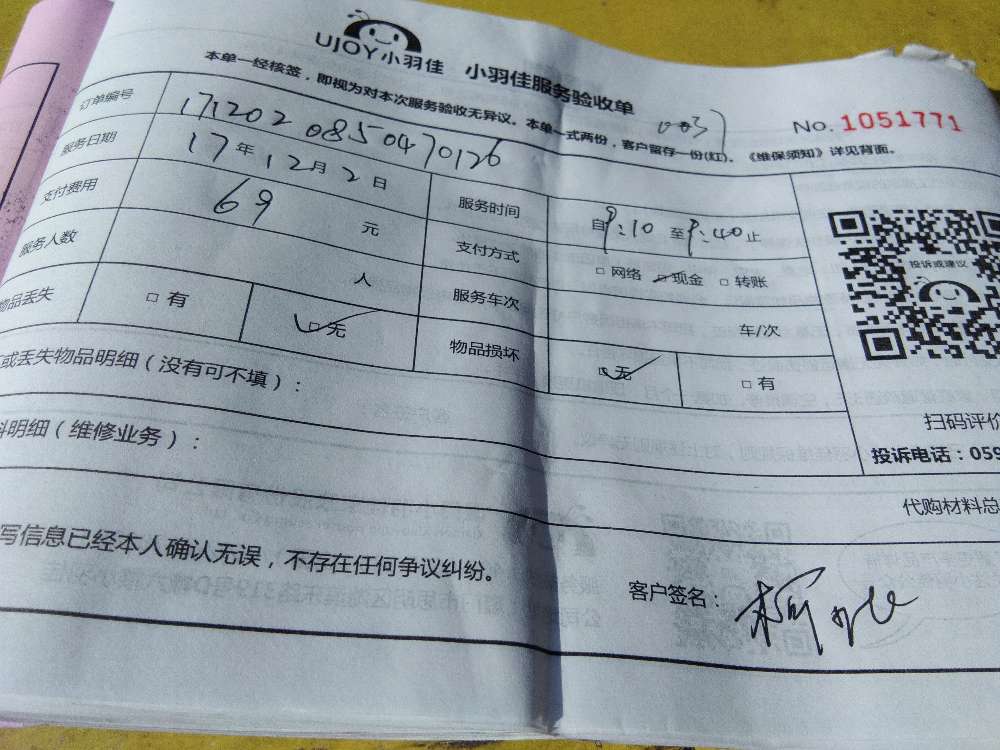 UJOY小羽佳 小羽佳服务验收单
本单一经核签，即视为对本次服务验收无异议。本单一式两份，客户留存一份(红)。《维保须知》详见背面。
No. 1051771
订单编号 1712020850470126
服务日期 17年12月2日 服务时间 自9:10至9:40止
支付费用 69 元 支付方式 □网络 ☑现金 □转账
服务人数 人 服务车次 车/次
物品丢失 □有 ☑无 物品损坏 ☑无 □有
投诉或建议
或丢失物品明细（没有可不填）：
扫码评价
料明细（维修业务）：
投诉电话：059
代购材料总
写信息已经本人确认无误，不存在任何争议纠纷。
客户签名：